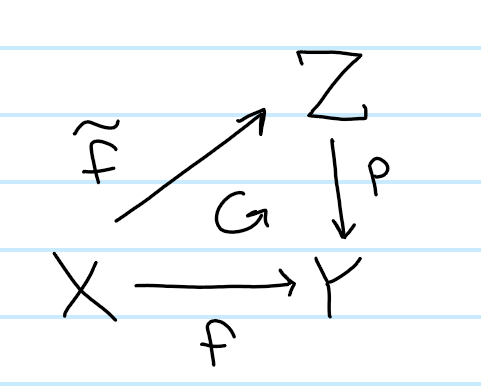 Z
f̃
p
G
X
Y
f